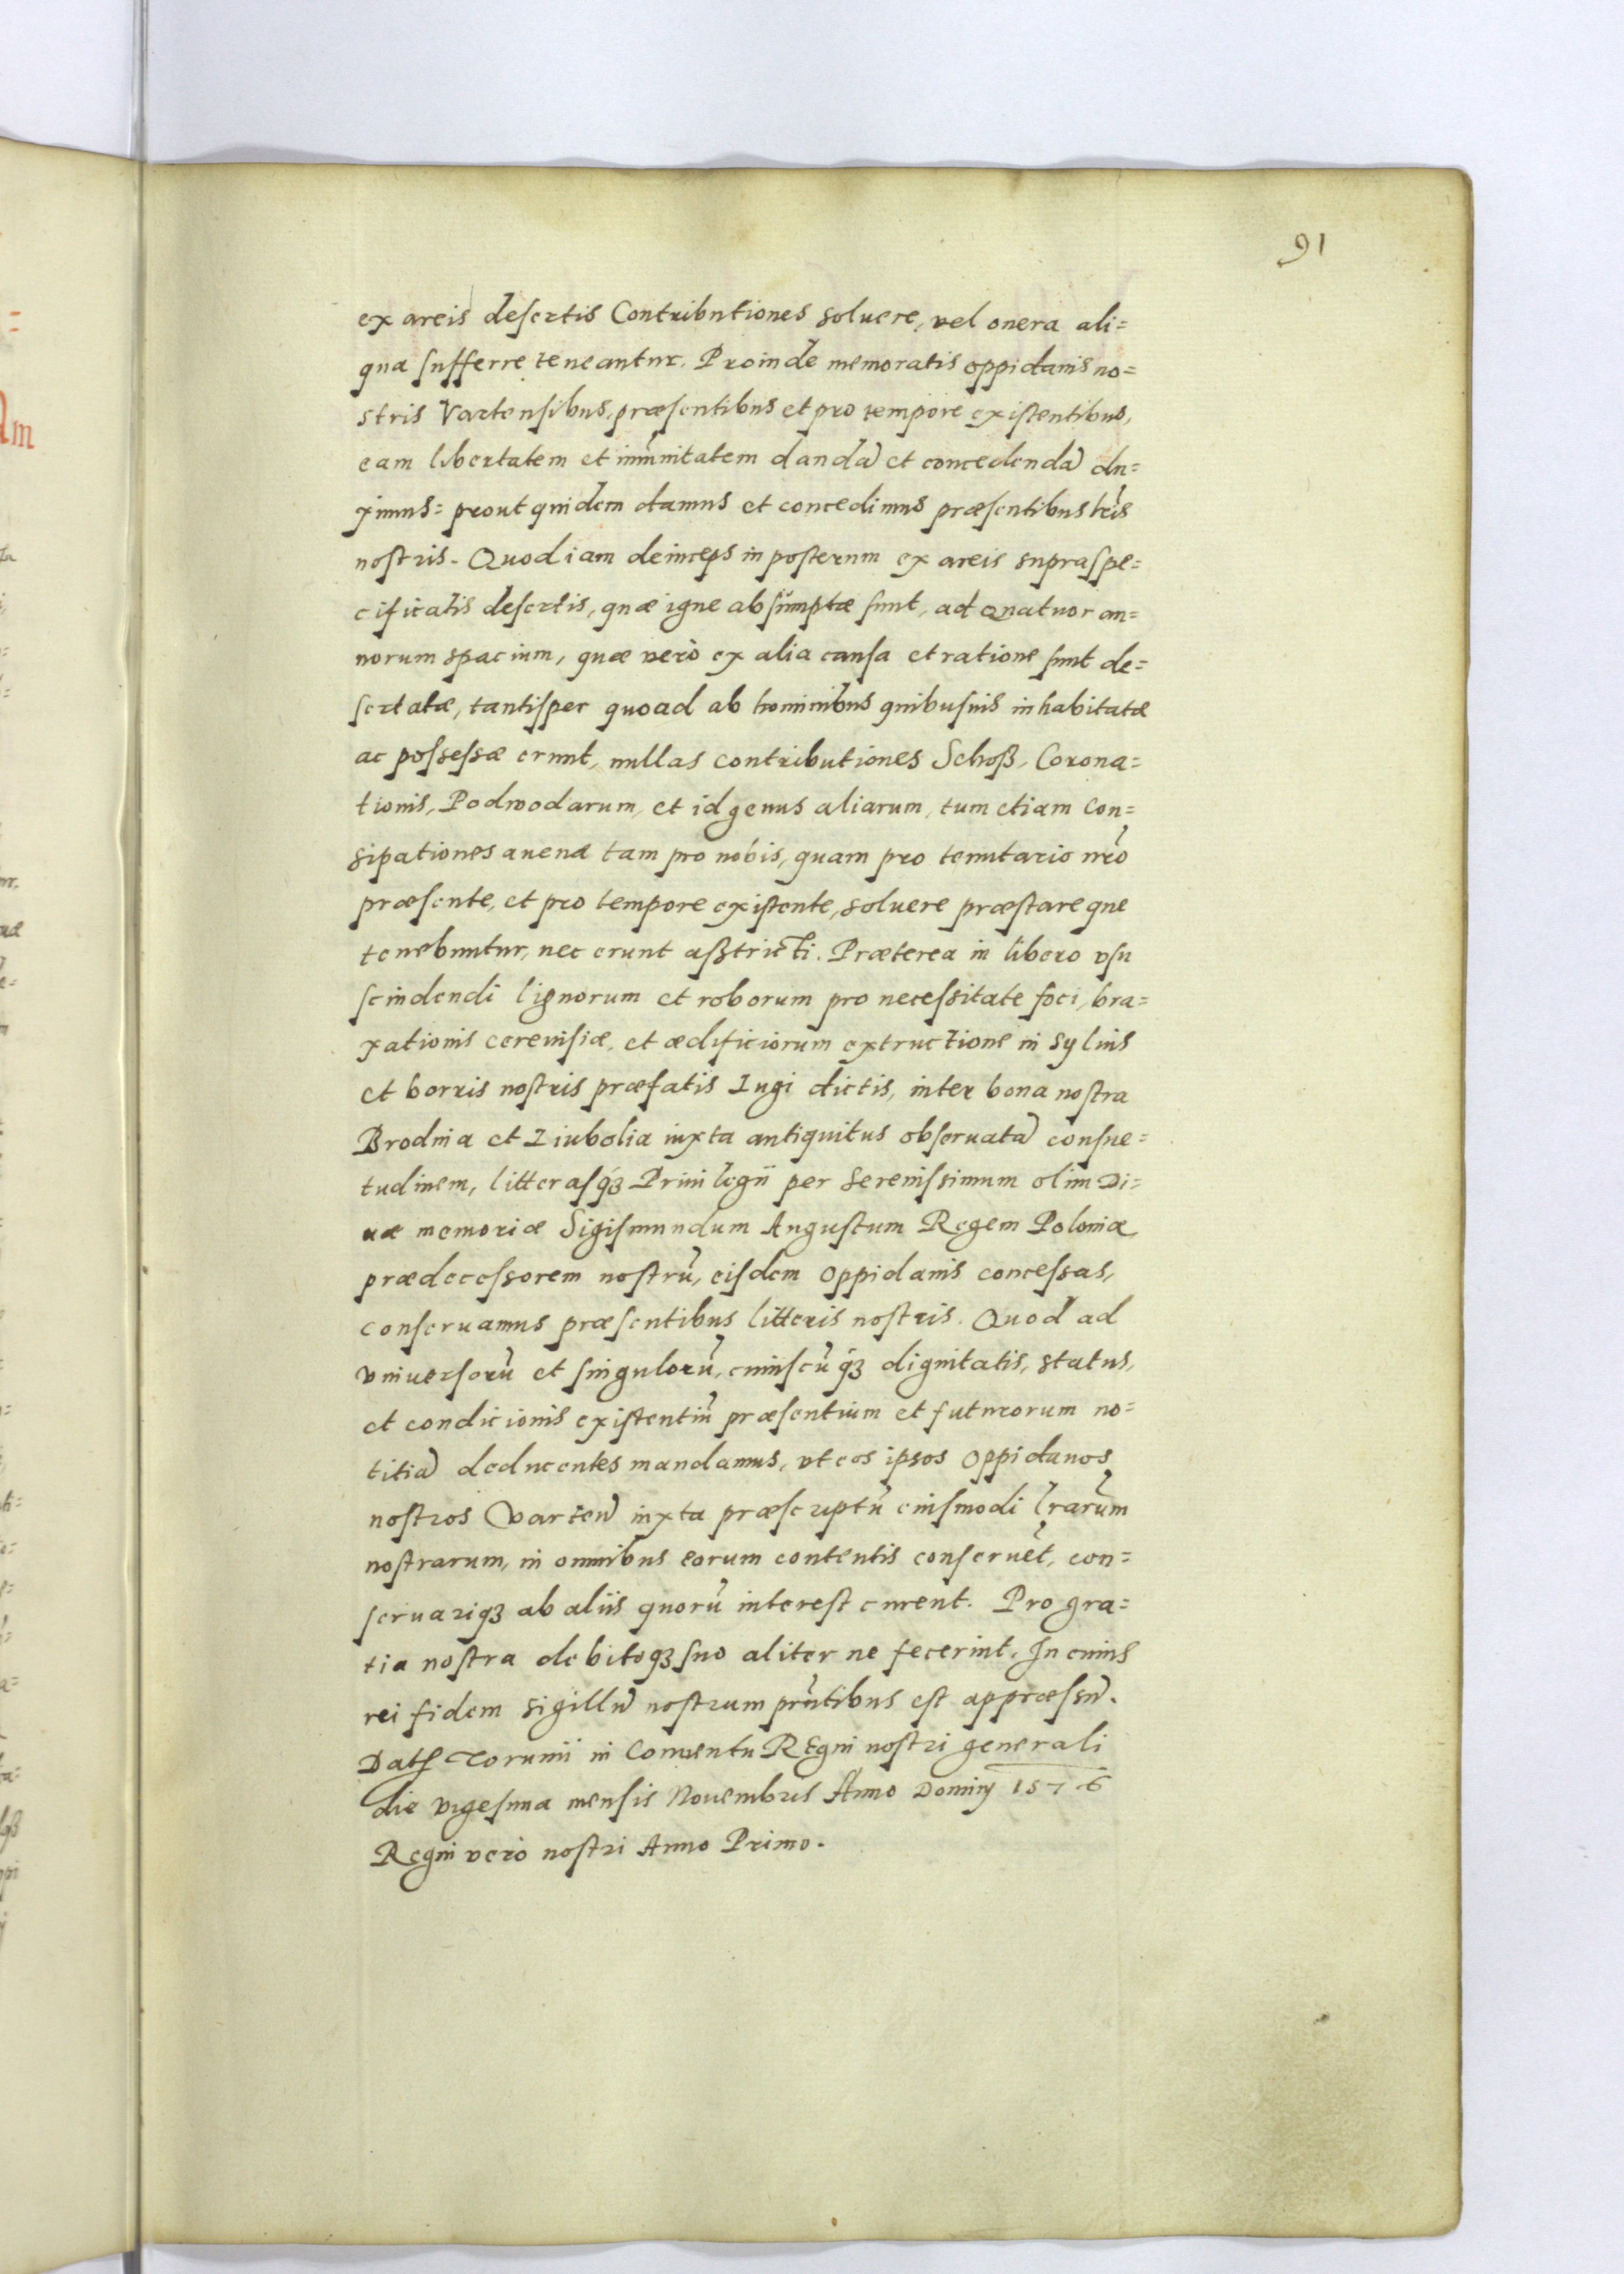 91
ex areis desertis Contributiones soluere, vel onera ali=
qua sufferre teneantur. Proinde memoratis oppidanis no=
stris Vartensibus, præsentibus et pro tempore existentibus,
eam libertatem et im̃unitatem dandã et concedendã du=
ximus= prout quidem damus et concedimus præsentibus lr̃is
nostris. Quod iam deinceps in posterum ex areis supraspe=
cificatis desertis, quæ igne absumptæ sunt, ad quatuor an=
norum spacium, quæ verò ex alia causa et ratione sunt de=
sertatæ, tantisper quoad ab hominibus quibusuis inhabitatæ
ac possessæ erunt, nullas contributiones Schoß, Corona=
tionis, Podwodarum, et id genus aliarum, tum etiam con=
sipationes auenæ tam pro nobis, quam pro tenutario nr̃o
præsente, et pro tempore existente, soluere præstareque
tenebuntur, nec erunt aßtricti. Præterea in libero vsu
scindendi lignorum et roborum pro necessitate foci, bra=
xationis cereuisiæ, et ædificiorum extructione in syluis
et borris nostris præfatis Lugi dictis, inter bona nostra
Brodnia et Liubolia iuxta antiquitus obseruatã consue=
tudinem, litterasq́ꝫ Priuilegii per serenissimum olim Di=
uæ memoriæ Sigismundum Augustum Regem Poloniæ
prædecessorem nostrũ, eisdem oppidanis concessas,
conseruamus præsentibus litteris nostris. Quod ad
vniuersorũ et singulorũ, cuiuscũq́ꝫ dignitatis, status,
et condicionis existentiũ præsentium et futurorum no=
titiã deducentes mandamus, vt eos ipsos oppidanos
nostros Varteñ iuxta præscriptũ eiusmodi lr̃arum
nostrarum, in omnibus eorum contentis conseruẽt, con=
seruariqꝫ ab aliis quorũ interest curent. Pro gra=
tia nostra debitoqꝫ suo aliter ne fecerint. In cuius
rei fidem sigillũ nostrum prñtibus est appræssũ.
Datꝭ Torunii in Conuentu REgni nostri generali
die vigesima mensis Nouembris Anno Dominj 1576
Regni verò nostri Anno Primo.